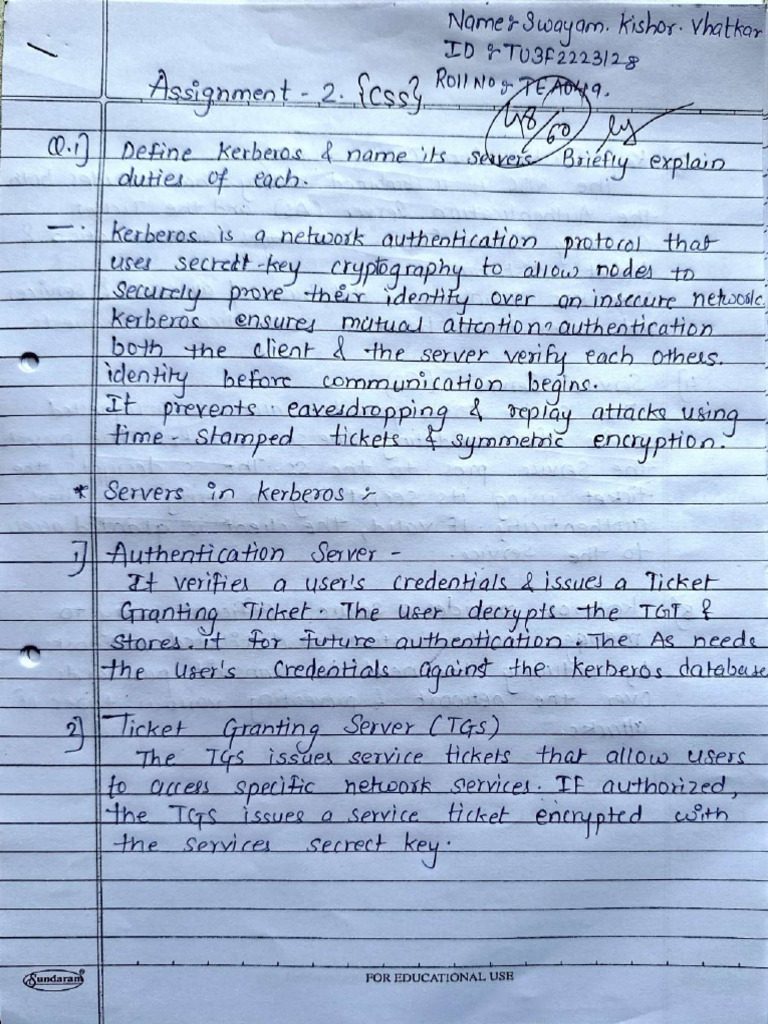 Name:- Swayam. Kishor. Vhatkar
ID :- TU3F2223128
Roll No :- TEA049.
Assignment - 2. {CSS}
48/60
Q.1] Define Kerberos & name its servers. Briefly explain
duties of each.
- Kerberos is a network authentication protocol that
uses secrett-key cryptography to allow nodes to
securely prove their identity over an insecure network.
Kerberos ensures mutual attention authentication
both the client & the server verify each others.
identity before communication begins.
It prevents eavesdropping & replay attacks using
time - stamped tickets & symmetric encryption.
* Servers in kerberos :-
1] Authentication Server -
It verifies a user's credentials & issues a Ticket
Granting Ticket. The user decrypts the TGT &
stores. it for future authentication. The As needs
the user's credentials against the kerberos database
2] Ticket Granting Server (TGS)
The TGS issues service tickets that allow users
to access specific network services. If authorized,
the TGS issues a service ticket encrypted with
the services secrect key.
Sundaram
FOR EDUCATIONAL USE